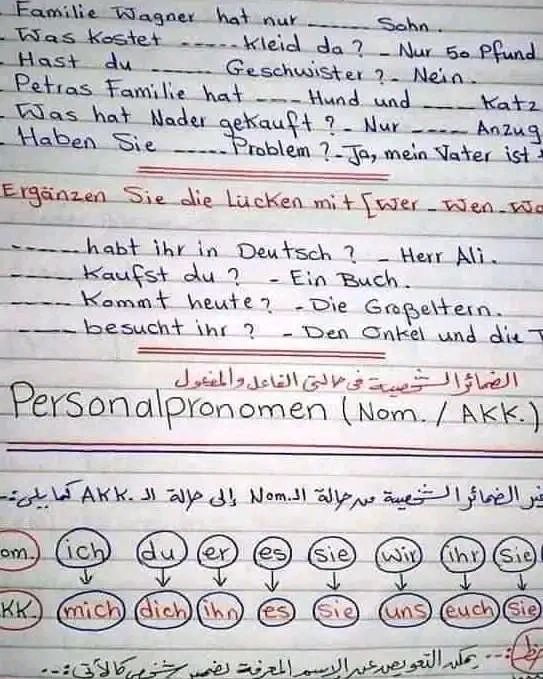 Familie Wagner hat nur ------ Sohn.
- Was kostet ----- Kleid da? - Nur 50 Pfund
- Hast du ------ Geschwister? - Nein.
Petras Familie hat ---- Hund und ---- Katz
- Was hat Nader gekauft? - Nur ---- Anzug
- Haben Sie ----- Problem? - Ja, mein Vater ist
Ergänzen Sie die Lücken mit [Wer - Wen - Wa
------ habt ihr in Deutsch? - Herr Ali.
------ Kaufst du? - Ein Buch.
----- Kommt heute? - Die Großeltern.
----- besucht ihr? - Den Onkel und die T
الضمائر الشخصية في حالتي الفاعل والمفعول
Personalpronomen (Nom. / AKK.)
الضمائر الشخصية من حالة الـ Nom. إلى حالة الـ AKK. كما يلي:-
om. ich du er es sie wir ihr Sie
KK. mich dich ihn es sie uns euch Sie
يمكن التعويض عن الاسم المعرفة بضمير شخصي كالآتي:--